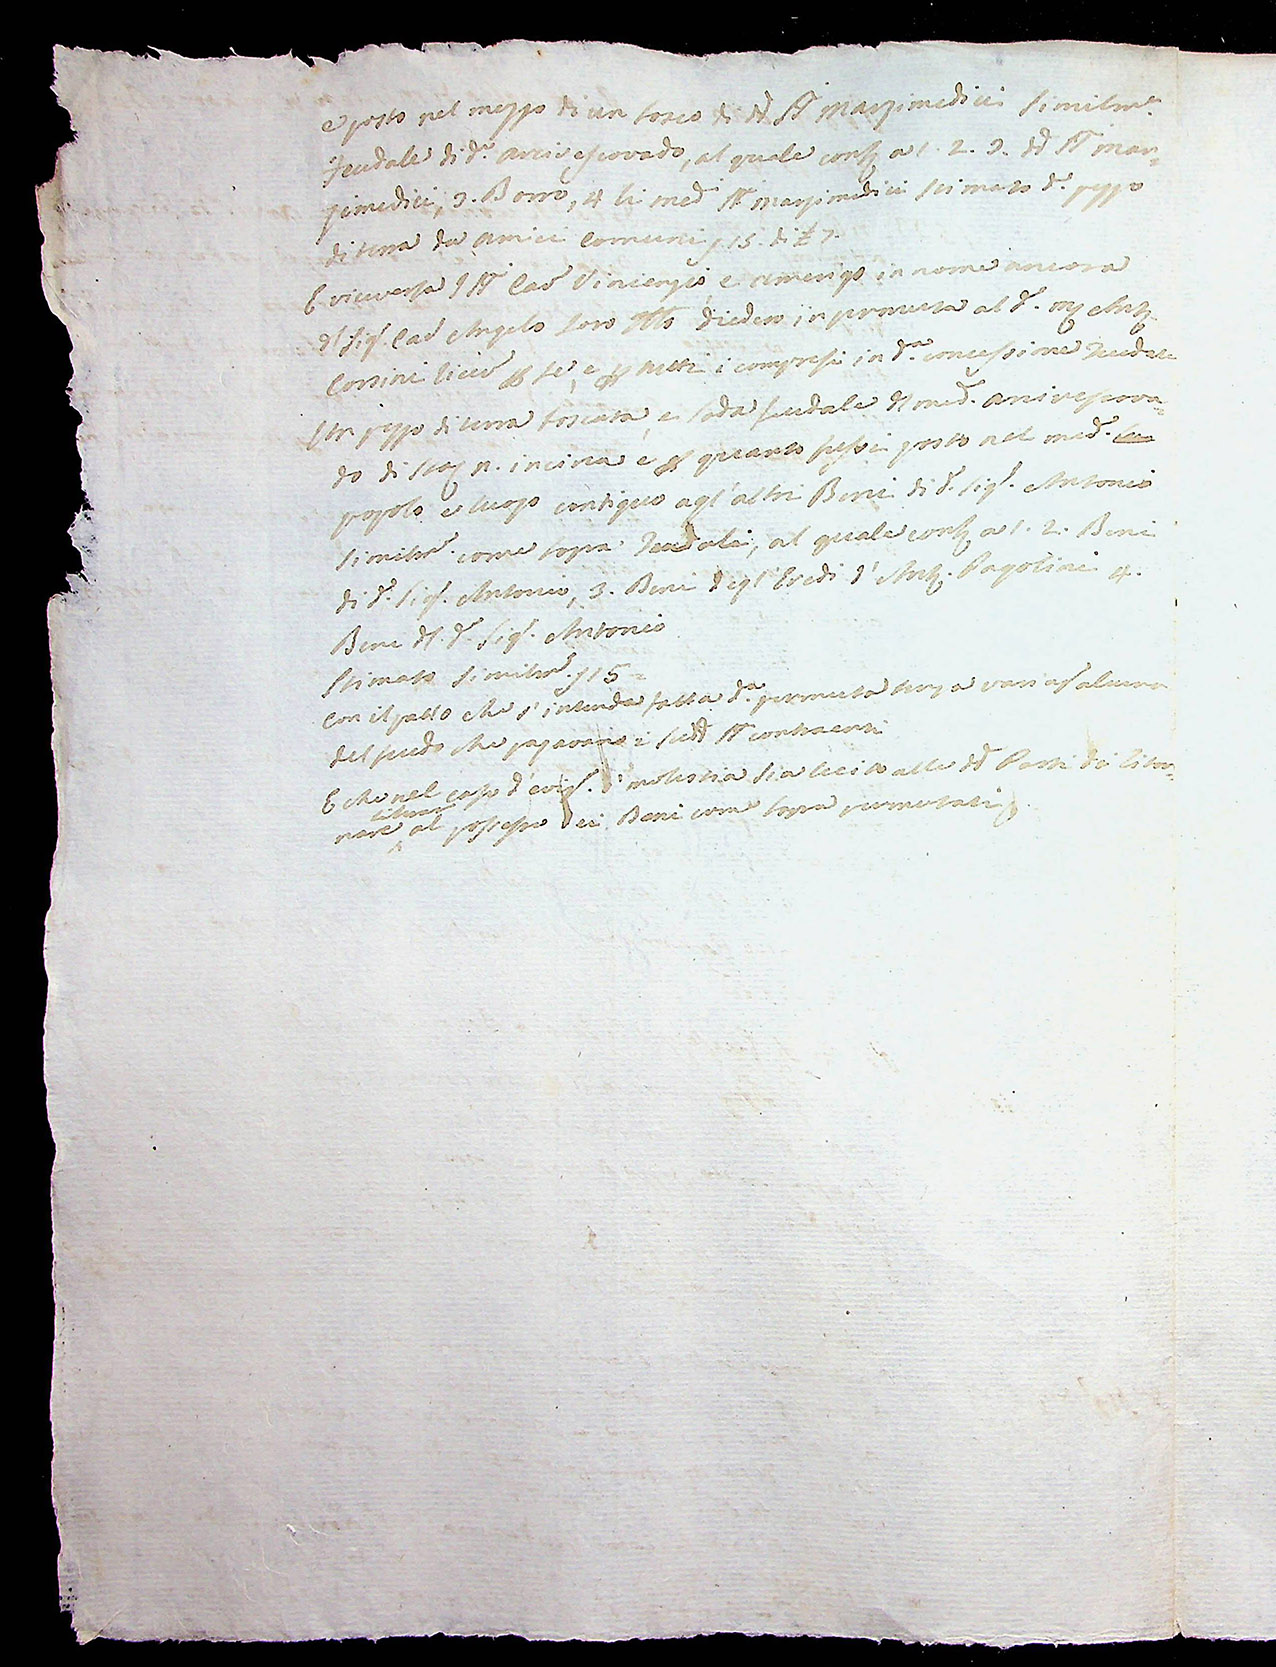 e posto nel mezzo di un bosco di dd. SS. Marzimedici similm.e
feudale di d.o Arcivescovado, al quale conf. a 1. 2. 3. dd. SS. Mar-
zimedici, 3. Borro, 4 li med. SS. Marzimedici stimato d.o pezzo
di terra da amici comuni 15. di £ 7.
E viceversa SS. Cav. Vincenzio, e Amerigo in nome ancora
del Sig. Cav. Angelo loro diedero in permuta al d.o Ant.
Corsini per se, e per tutti i compresi in d.a concessione feudale
Un pezzo di terra boscata, e soda feudale del med. Arcivescova-
do di n. incirca e quanto posto nel med.
popolo e luogo contiguo agl'altri Beni di d.o Sig. Antonio
similm. come sopra feudali, al quale conf. a 1. 2. Beni
di d.o Sig. Antonio, 3. Beni degl'Eredi d'Ant. Pagolini 4.
Beni del d.o Sig. Antonio
Stimato similm. 15
Con il patto che s'intenda fatta d.a permuta senza alcuna
del feudo che pagavano i SS. contraenti
E che nel caso d' molestia sia lecito alle dd. Parti di
nare al possesso dei Beni come sopra permutati